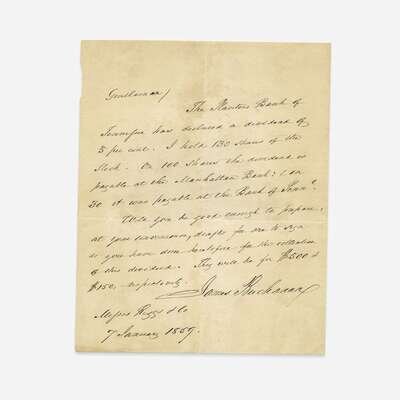 Gentlemen/
The Planters Bank of
Tennessee has declared a dividend of
5 per cent. I hold 130 shares of the
Stock. On 100 shares the dividend is
payable at the Manhattan Bank; & on
30 it was payable at the Bank of Penna.
Will you be good enough to prepare,
at your convenience, drafts for me to sign
as you have done heretofore for the collection
of this dividend. They will be for $500 &
$150, respectively.
James Buchanan
Messrs Riggs & Co
7 January 1859.